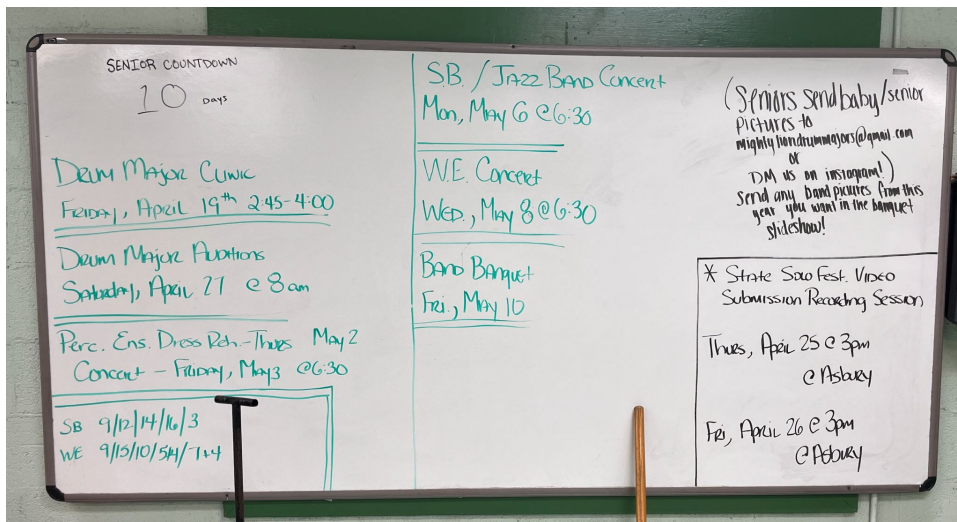 SENIOR COUNTDOWN
10 DAYS
DRUM MAJOR CLINIC
FRIDAY, APRIL 19th 2:45-4:00
DRUM MAJOR AUDITIONS
SATURDAY, APRIL 27 @ 8am
PERC. ENS. DRESS REH.-THURS MAY 2
CONCERT - FRIDAY, MAY 3 @6:30
SB 9/12/14/16/3
WE 9/15/10/5/4/-7+4
S.B. / JAZZ BAND CONCERT
MON, MAY 6 @6:30
W.E. CONCERT
WED., MAY 8 @6:30
BAND BANQUET
FRI., MAY 10
(Seniors send baby/senior
PICTURES to
mightyliondrummajors@gmail.com
or
DM us on instagram!)
Send any band pictures from this
year you want in the banquet
slideshow!
* STATE SOLO FEST. VIDEO
SUBMISSION RECORDING SESSION
THURS, APRIL 25 @ 3pm
@ ASBURY
FRI, APRIL 26 @ 3pm
@ ASBURY